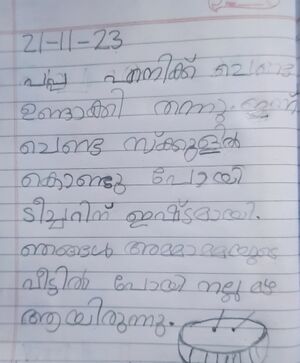 21-11-23
പപ്പ എനിക്ക് ചെണ്ട
ഉണ്ടാക്കി തന്നു. ഇന്ന്
ചെണ്ട സ്ക്കൂളിൽ
കൊണ്ടു പോയി
ടീച്ചറിന് ഇഷ്ടമായി.
ഞങ്ങൾ അമ്മാമ്മയുടെ
വീട്ടിൽ പോയി നല്ല മഴ
ആയിരുന്നു.